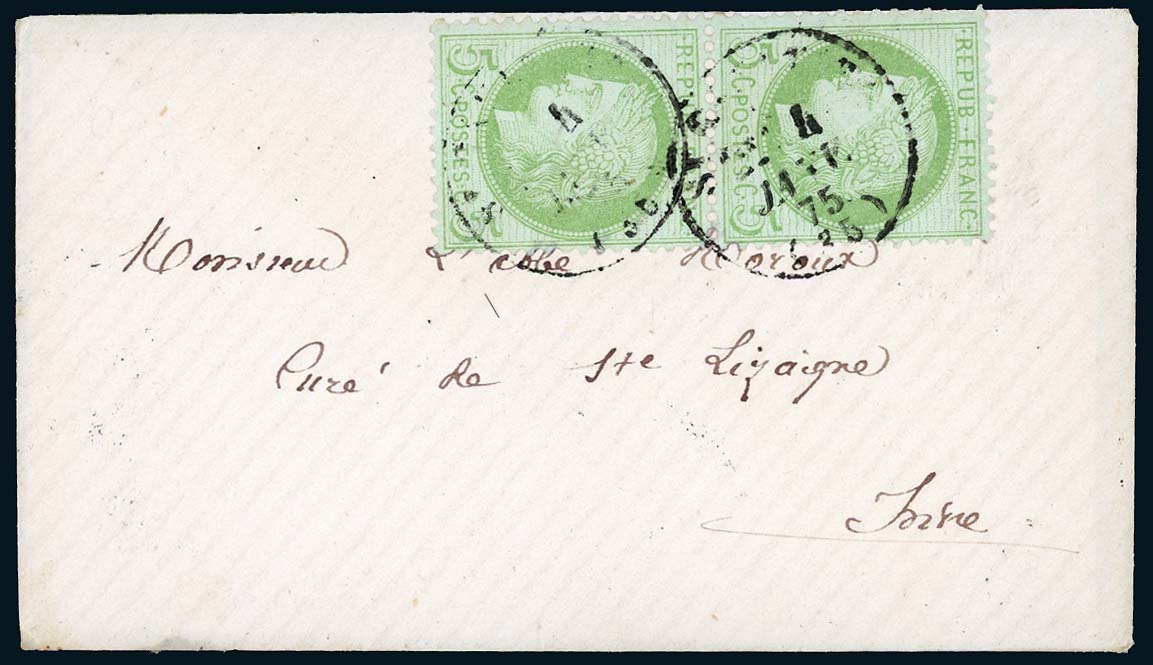 REPUB·FRANC·
5 C·POSTES·C·5
REPUB·FRANC·
5 C·POSTES·C·5
4
4
JANV.
75
(35)
Monsieur L'abbé Moroux
Curé de Ste Lizaigne
Indre